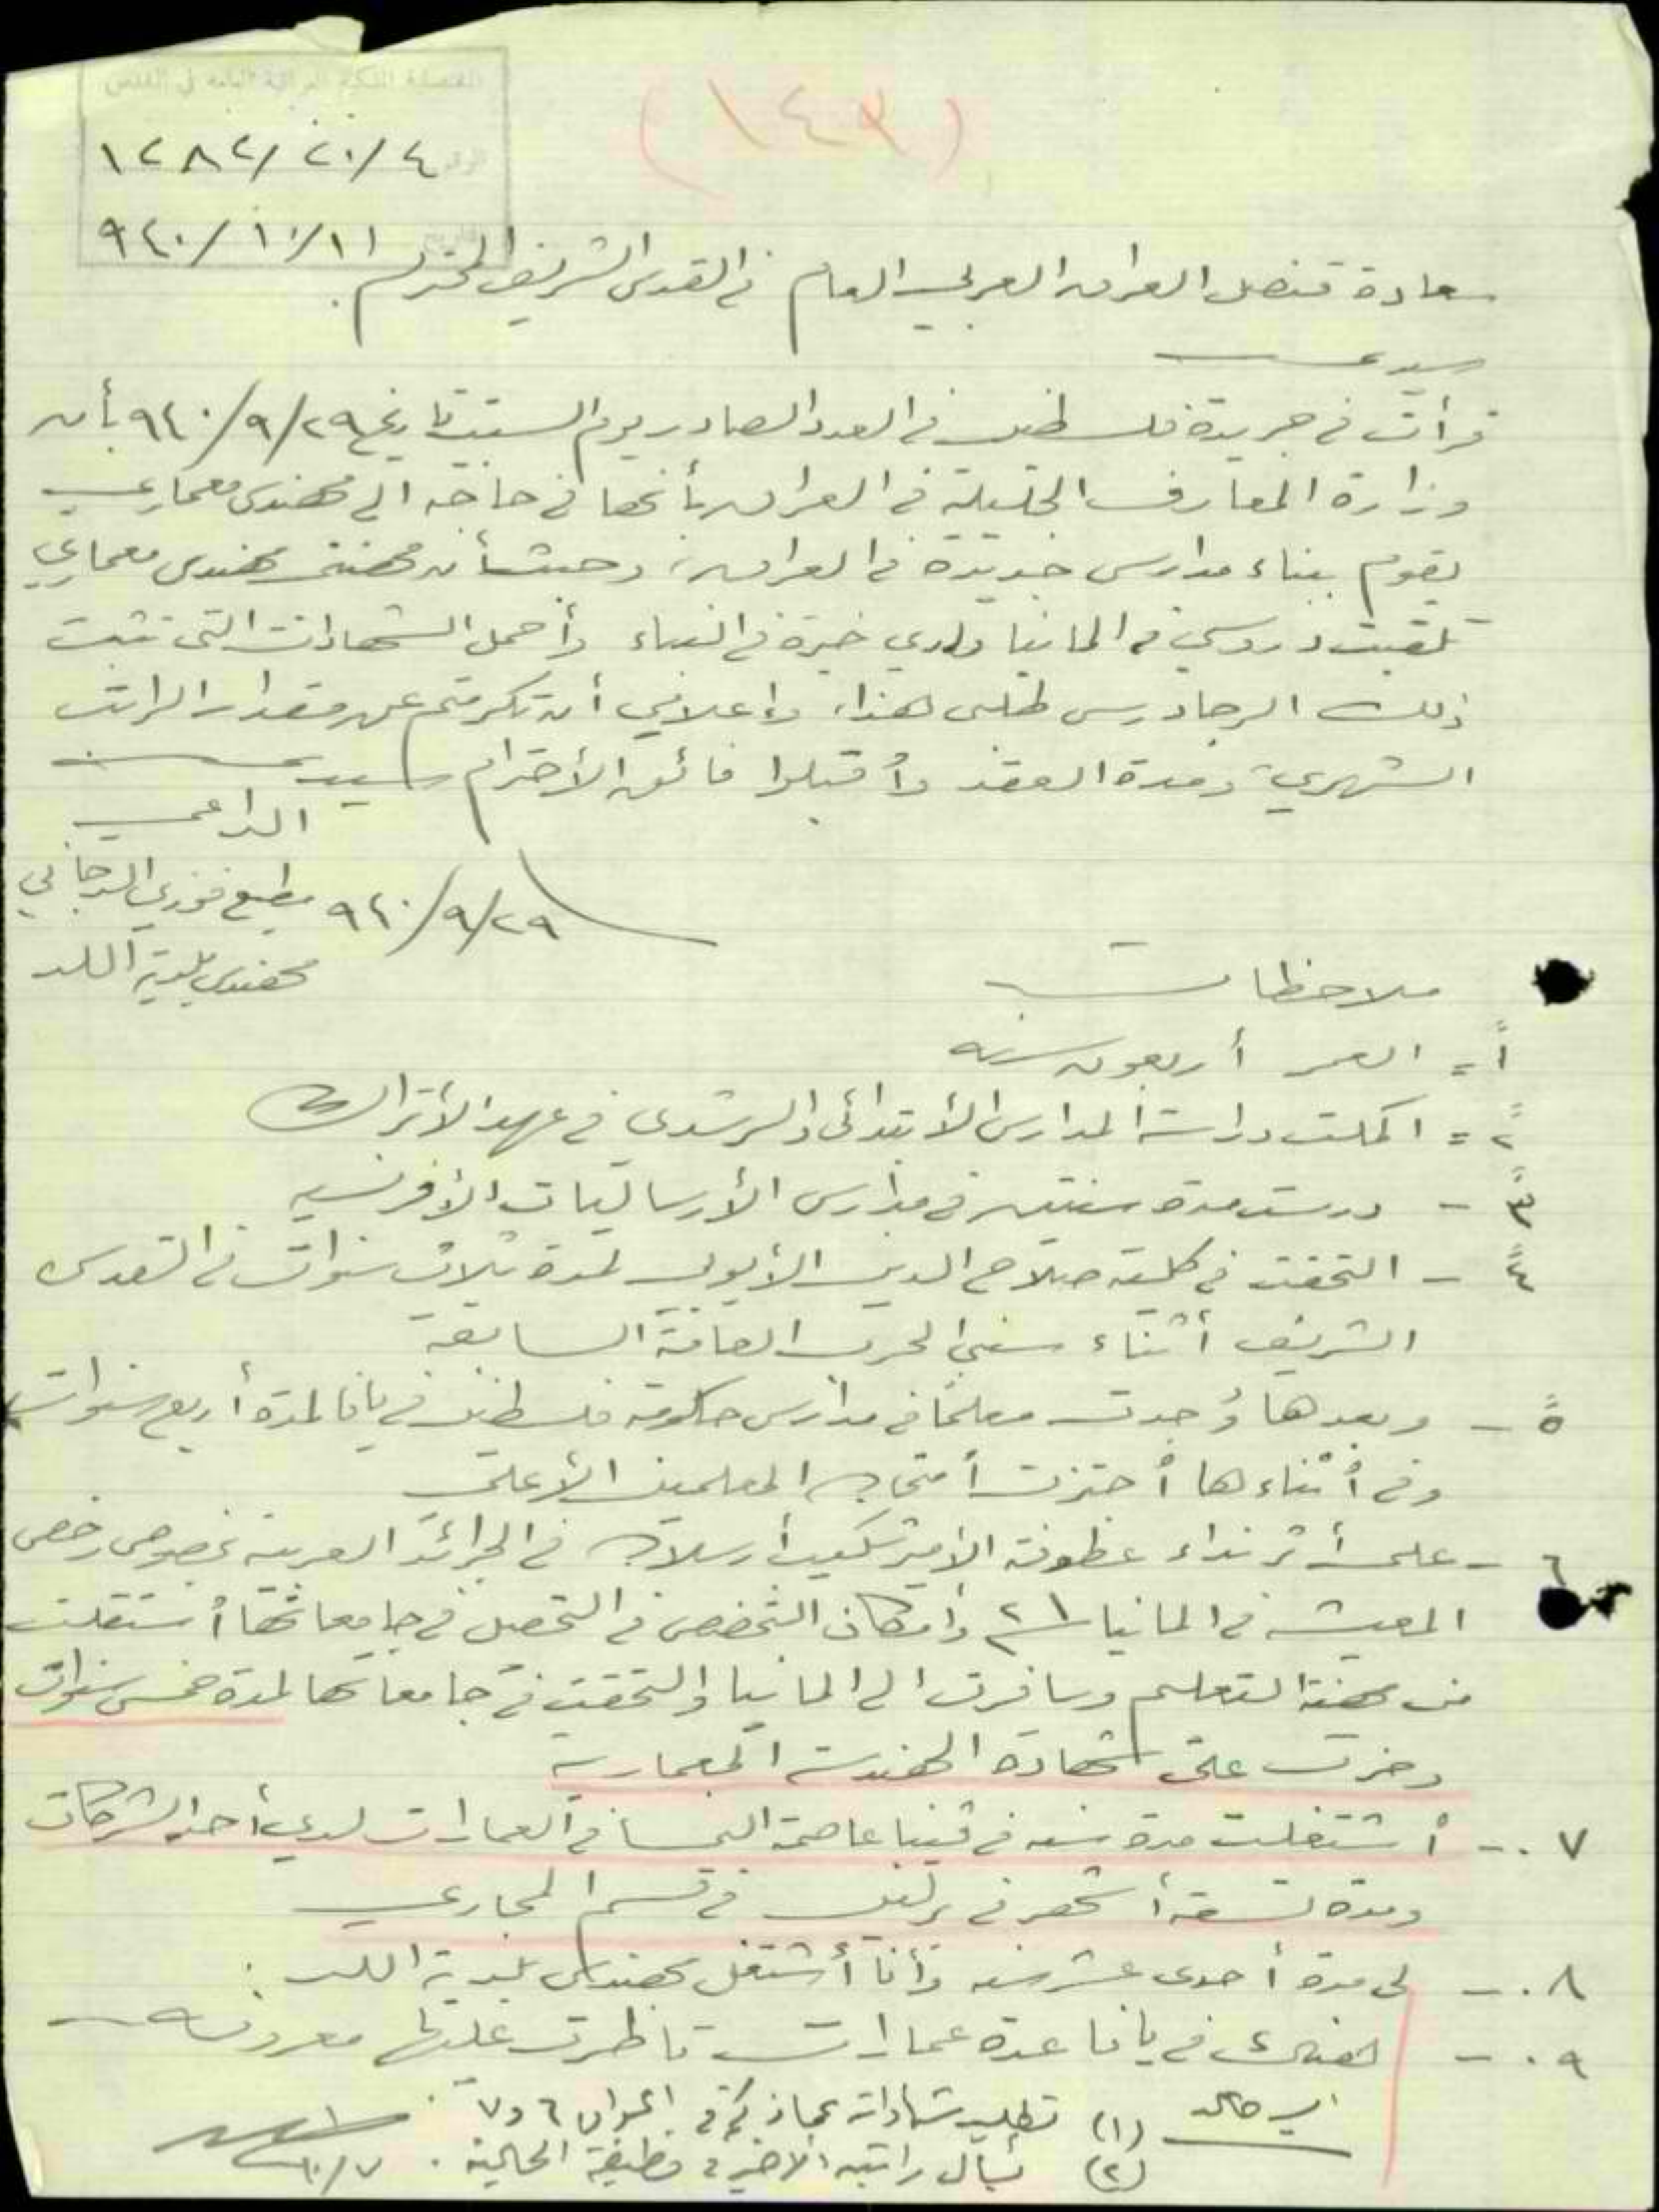 (١٤٣)
القنصلية الملكية العراقية العامة في القدس
١٢٨٢/٢٠/٤
٩٤٠/١٠/١١
سعادة قنصل العراق العربي العام في القدس الشريف المحترم.
سيدي
قرأت في جريدة فلسطين في العدد الصادر يوم السبت تاريخ ٩٤٠/٩/٢٩ بأن
وزارة المعارف الجليلة في العراق بأنها في حاجة الى مهندس معماري
يقوم ببناء مدارس جديدة في العراق، وحيث أن مهنتي مهندس معماري
تلقيت دروسي في المانيا ولدي خبرة في البناء وأحمل الشهادات التي تثبت
ذلك الرجا درس طلبي هذا، وإعلامي أن تكرمتم عن مقدار الراتب
الشهري ومدة العقد وأقبلوا فائق الأحترام سيدي
الداعي
٩٤٠/٩/٢٩ مطيع فوزي الدجاني
مهندس بلدية اللد
ملاحظات
١ = العمر أربعون سنه
٢ = اكملت دراسة المدارس الأبتدائي والرشدي في عهد الأتراك
٣ - درست مدة سنتين في مدارس الأرساليات الأفرنسيه
٤ - التحقت في كلية صلاح الدين الأيوبي لمدة ثلاث سنوات في القدس
الشريف أثناء سني الحرب العامة السابقة
٥ - وبعدها وُجدت معلمًا في مدارس حكومة فلسطين في يافا لمدة أربع سنوات
وفي أثناءها أجتزت أمتحان المعلمين الأعلى
٦ - على أثر نداء عطوفة الأمير شكيب أرسلان في الجرائد العربية بخصوص رخص
المعيشه في المانيا سنة ٢١ وأمكان التخصص في التحصيل في جامعاتها أستقلت
من مهنة التعليم وسافرت الى المانيا والتحقت في جامعاتها لمدة خمس سنوات
وحزت على شهادة الهندسة المعمارية
٧ - أشتغلت مدة سنه في ڤينا عاصمة النمسا في العمارات لدى أحد الشركات
ومدة تسعة أشهر في برلين في قسم المجاري
٨ - لي مدة أحدى عشر سنه وأنا أشتغل مهندس بلدية اللد.
٩ - هنالك في يافا عدة عمارات ناظرت عليها معروفه
(١) تطلب شهاداته بما ذكر في المواد ٦ و٧.
(٢) يسأل راتبه الاخير في وظيفة الحالية. ١٠/٧